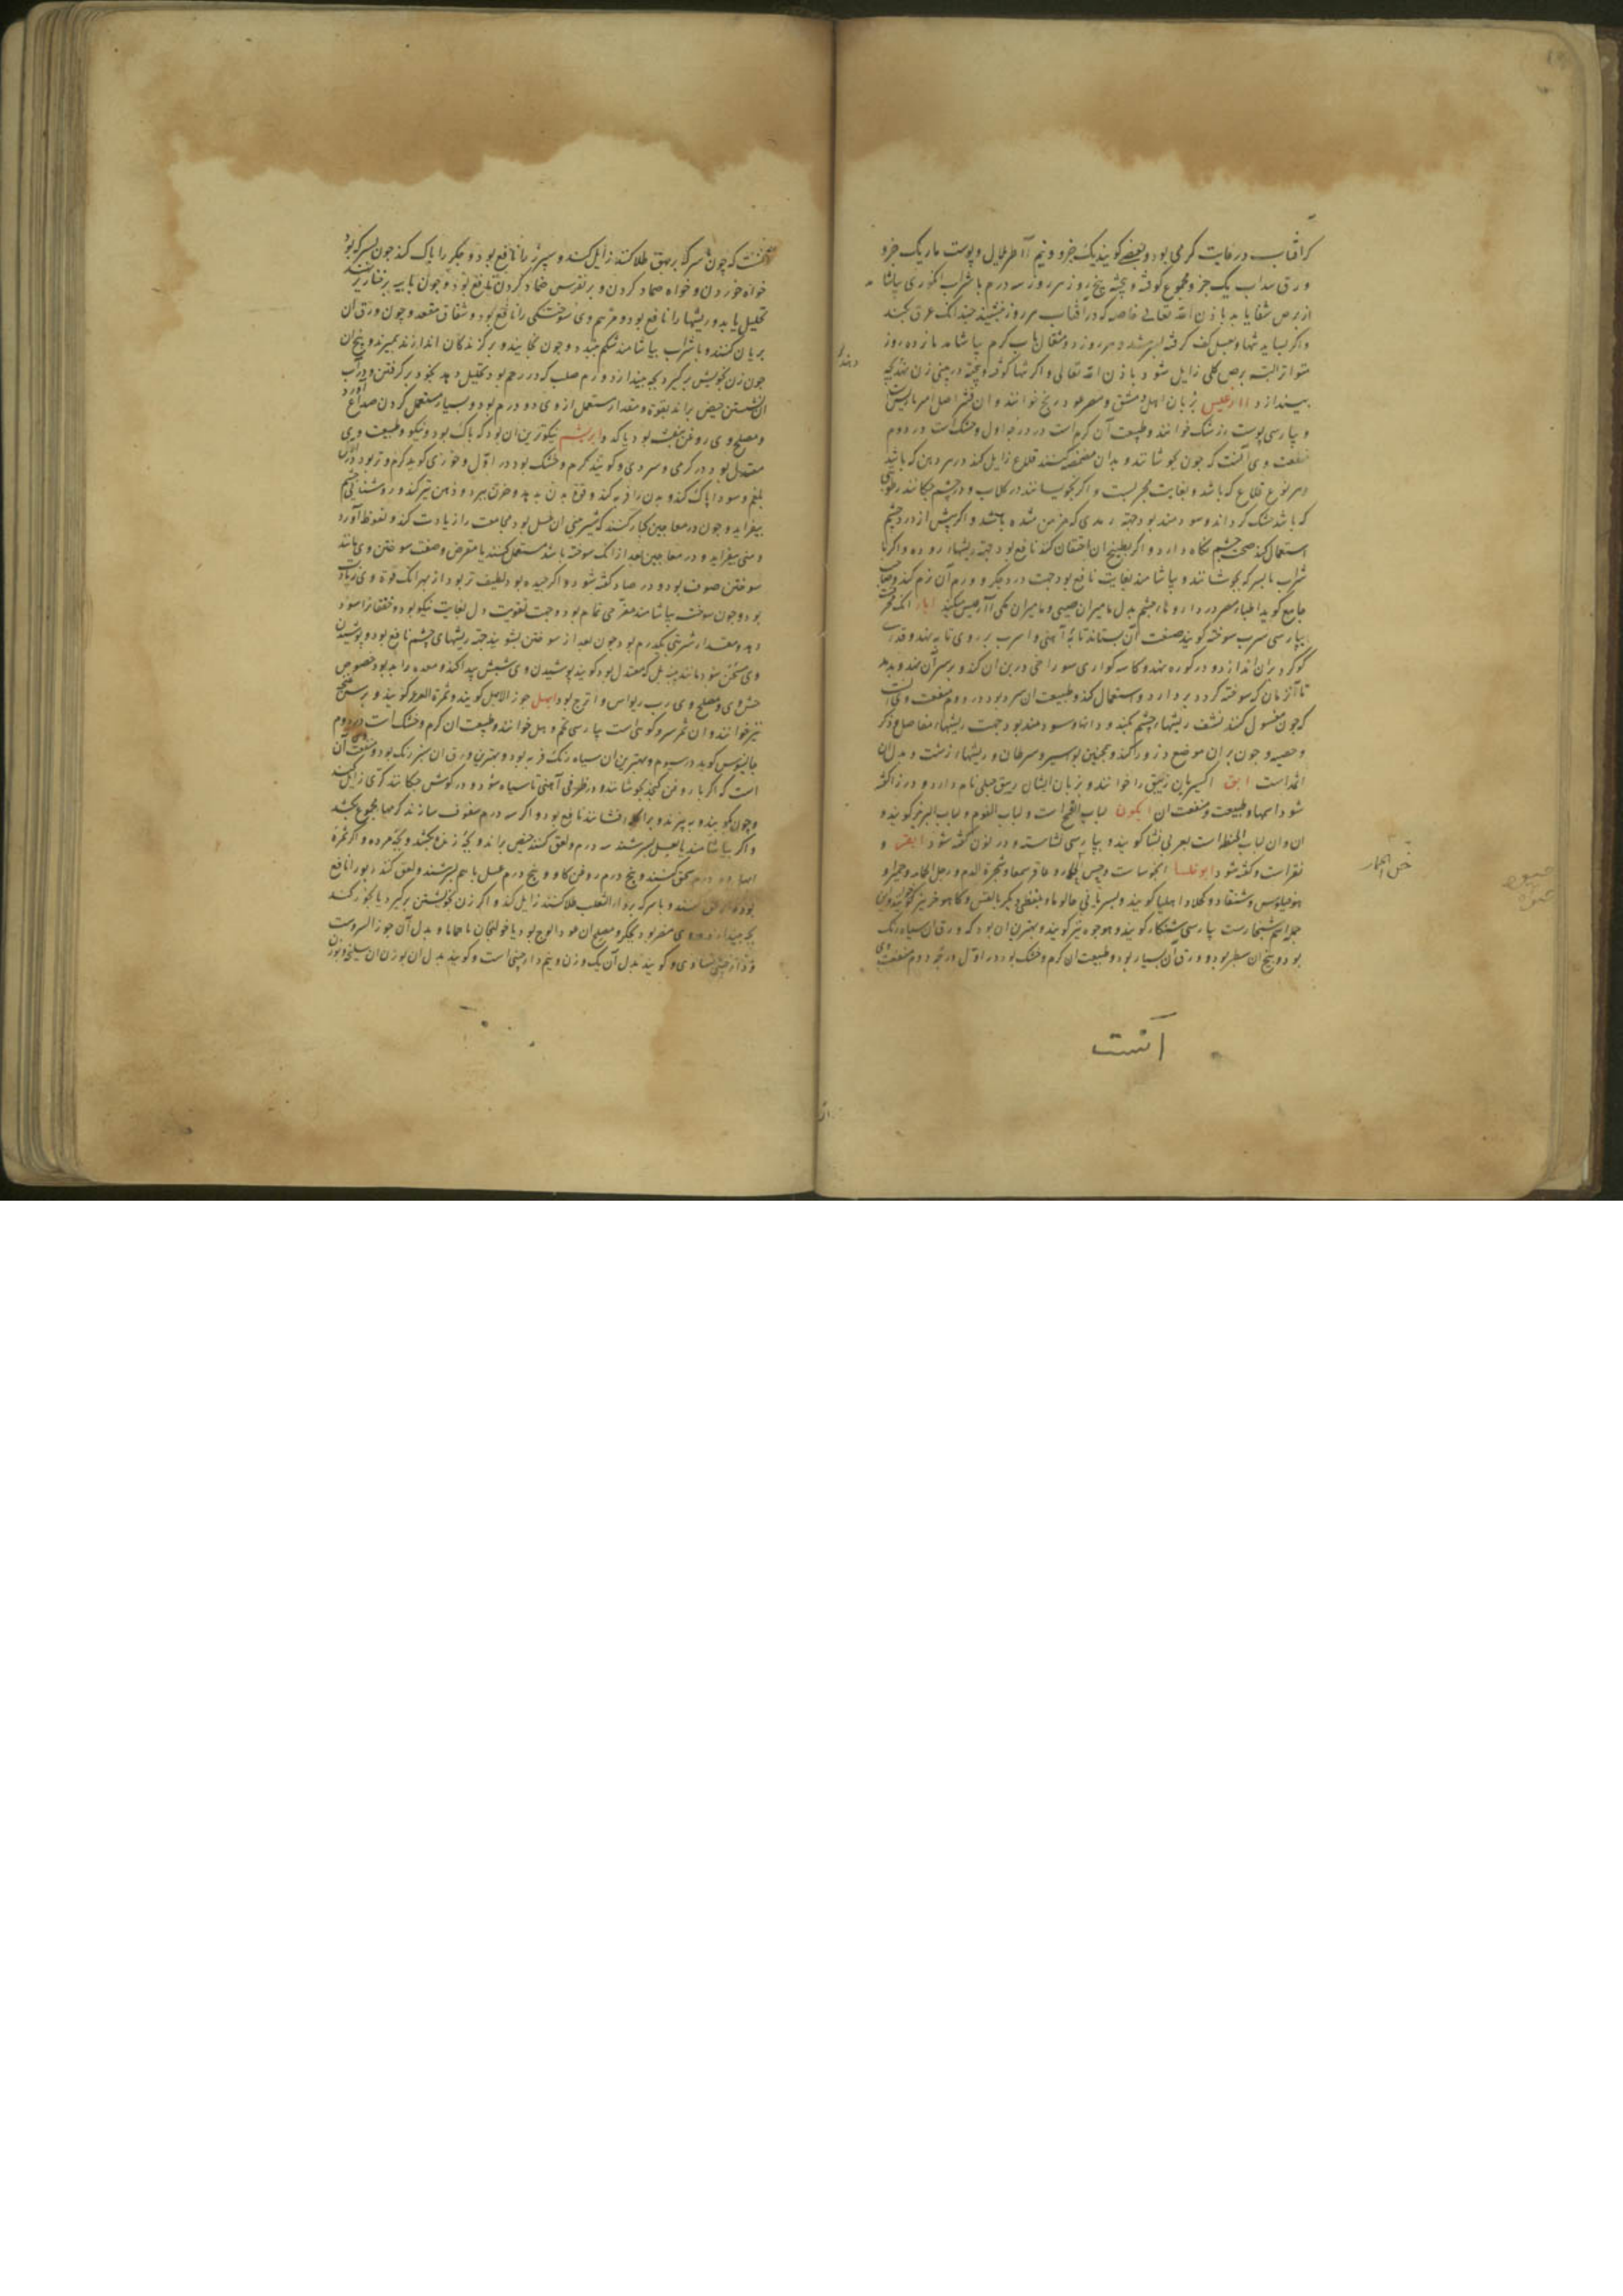 کرافتاب در غایت کرمی بود و بعضی کویند یک جزو و نیم آاطریلال و پوست مار یک جزو
ورق سداب یک جزو مجموع کوفته و بیخته پنج روز هر روز سه درم با شراب انکوری بیاشا
از برص شفا یابد باذن الله تعالی خاصه که در افتاب هر روز بنشیند چندانک عرق بکند
و اکر بسایند تنها و بعسل کف کرفته بسرشند و هر روز دو مثقال بآب کرم بیاشامد بانزده روز
متواتر البته برص کلی زایل شود باذن الله تعالی و اکر تنها کوفته و بیخته در بینی زن نهند بچه
بیندازد آارغیس بزبان اهل دمشق و مصر عود ریح خوانند و ان قشر اصل امبرباریس است
و بپارسی پوست زرشک خوانند و طبیعت آن کرم است در درجه اول و خشک است در دوم
منفعت وی آنست که چون بجوشانند و بدان مضمضه کنند قلاع زایل کند در هر دهن که باشد
و هر نوع قلاع که باشد و بغایت مجربست و اکر بخیسانند در کلاب و در چشم چکانند رطوبتی
که باشد خشک کرداند و سودمند بود جهته رمدی که مزمن شده باشد و اکر پیش از درد چشم
استعمال کند صحت چشم نکاه دارد و اکر بطبیخ ان احتقان کنند نافع بود جهته ریشهاء روده و اکر با
شراب یا بسرکه بجوشانند و بیاشامند بغایت نافع بود جهت درد جکر و ورم آن نرم کند و صاحب
جامع کوید اطباء مصر در داروهاء چشم بدل مامیران چینی و مامیران مکی آارغیس میکنند ابار آنک محرقست
بپارسی سرب سوخته کویند صنعت آن بستاند تابهٔ آهنی و اسرب بر روی تابه نهند و قدری
کوکرد بران اندازد و در کوره نهند و کاسه کواری سوراخی در بن ان کند و بر سر آن نهند و بدمد
تا آن زمان که سوخته کردد بردارد و استعمال کند و طبیعت ان سرد بود در دوم منفعت وی آنست
که چون مغسول کنند نشف ریشهاء چشم بکند و دانها و سودمند بود جهت ریشهاء مفاصل و ذکر
و خصیه و چون بر ان موضع ذرور کند و همچنین بواسیر و سرطان و ریشهاء زشت و بدل ان
اثمد است ابق اکسیریان زیبق را خوانند و بزبان ایشان ربیق جبلی نام دارد و در زا کفته
شود اسما و طبیعت و منفعت ان ابکون لباب القمح است و لباب الفوم و لباب البر نیز کویند و
ان وان لباب الحنطه است بعربی نشا کویند و بپارسی نشاسته و در نون کفته شود ابقر و
نقر است و کفته شود ابو خلسا
جمله اسم شنجارست بپارسی شنکار کویند و هوجوه نیز کویند و بهترین ان بود که ورق ان سیاه رنک
بود و بیخ ان سطبر بود و ورق آن بسیار بود و طبیعت ان کرم و خشک بود در اول درجه دوم منفعت وی
آنست
خس الحمار
آنست که چون با سرکه بر بهق طلا کنند زایل کند و سپرز را نافع بود و جکر را پاک کند چون بسرکه بود
خواه خوردن و خواه ضماد کردن و بر نقرس ضماد کردن نافع بود و چون با پیه بر خنازیر نهند
تحلیل یابد و ریشها را نافع بود و مرهم وی سوختکی را نافع بود و شقاق مقعد و چون ورق ان
بریان کنند و با شراب بیاشامند شکم ببندد و چون بخایند و بر کزندکان اندازند بمیرند و بیخ ان
چون زن بخویش برکیرد بچه بیندازد و ورم صلب که در رحم بود تحلیل دهد بخود برکرفتن و در آب
ان نشستن حیض براند بقوة و مقدار مستعمل از وی دو درم بود و بسیار مستعمل کردن صداع آورد
و مصلح وی روغن بنفشه بود یا کدو ابریشم نیکوترین ان بود که پاک بود و نیکو و طبیعت وی
معتدل بود در کرمی و سردی و کویند کرم و خشک بود در اول و خوزی کوید کرم و تر بود در اول
بلغم و سودا پاک کند و بدن را فربه کند و قوة بدن بدهد و حزن ببرد و ذهن تیز کند و روشنایی چشم
بیفزاید و چون در معاجین بکار کنند که شیرینی ان عسل بود مجامعت را زیادت کند و نعوظ آورد
و منی بیفزاید و در معاجین بعد از آنک سوخته باشد مستعمل کنند یا مقرض و صفت سوختن وی مانند
سوختن صوف بود و در صاد کفته شود و اکر چیده بود لطیف تر بود از بهر آنک قوة وی زیادت
بود و چون سوخته بیاشامند مفرحی تمام بود و جهت تقویت دل بغایت نیکو بود و خفقان را سود
دهد و مقدار شربتی یکدرم بود چون بعد از سوختن بشویند جهته ریشهای چشم نافع بود و پوشیدن
وی مسخن نبود مانند پنبه بل که معتدل بود کویند پوشیدن وی شپش پیدا کند و معده را بد بود خصوص
خشوی و مصلح وی رب ریواس و اترج بود ابهل جوز الابهل کویند و ثمرة العرعر کویند و
نیز خوانند و ان ثمر سرو کوهی است بپارسی تخم وهل خوانند و طبیعت ان کرم و خشک است در دوم
جالینوس کوید در سیوم و بهترین ان سیاه رنک فربه بود و بهترین ورق ان سبز رنک بود و منفعت آن
است که اکر با روغن کنجد بجوشانند در ظرفی آهنی تا سیاه شود و در کوش چکانند کری زایل کند
و چون بکوبند و بپزند و براکله افشانند نافع بود و اکر سه درم سفوف سازند کرمها مجموع بکشد
و اکر بیاشامند یا بعسل بسرشند سه درم و لعق کنند حیض براند و بچه زنده بکشد و بچه مرده و اکر ثمره
ابهل ده درم سحق کنند و پنج درم روغن کاو و پنج درم عسل با هم بسرشند و لعق کنند ربو را نافع
بود
سحق کنند و با سرکه بر داء الثعلب طلا کنند زایل کند و اکر زن بخویشتن برکیرد یا بخور کند
بچه بیندازد و وی مضر بود بجکر و مصلح ان
بود یا خولنجان یا حماما و بدل آن جوز السروست
و کویند بدل آن یک وزن و نیم دارچینی است و کویند بدل ان بوزن ان سلیخه بود